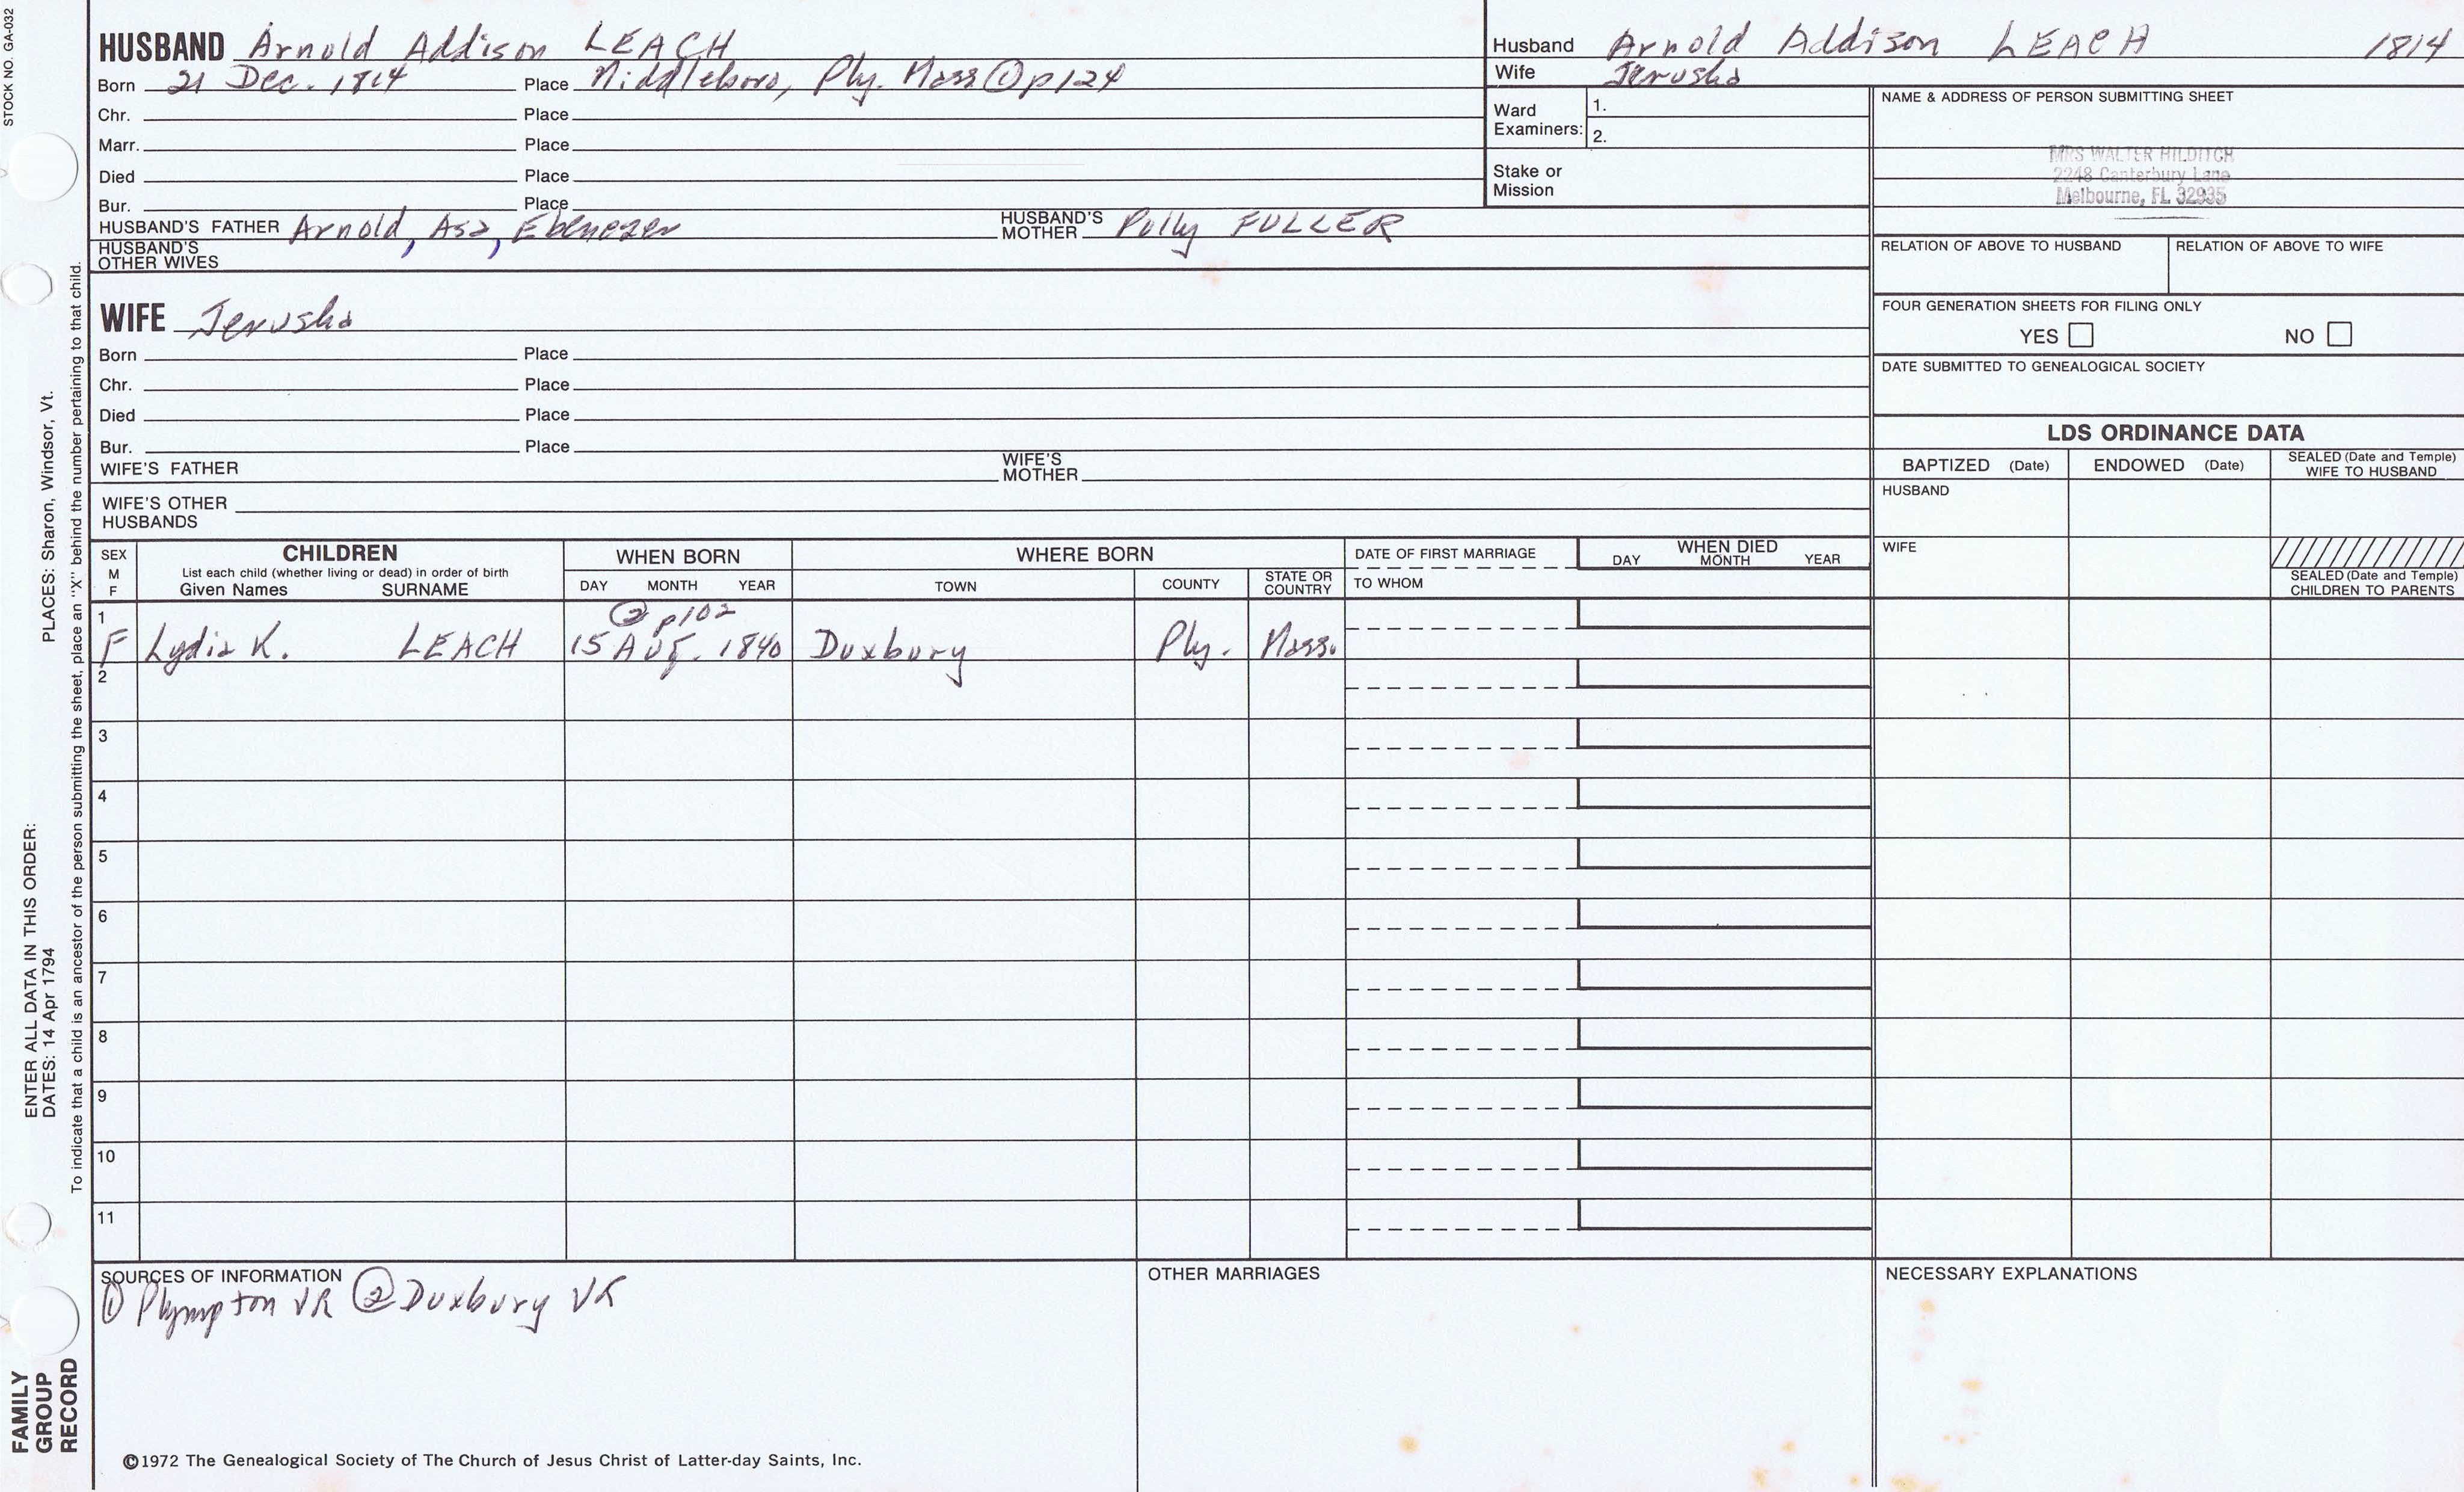 STOCK NO. GA-032
HUSBAND Arnold Addison LEACH
Born 21 Dec. 1814 Place Middleboro, Ply. Mass ① p124
Chr. Place
Marr. Place
Died Place
Bur. Place
HUSBAND'S FATHER Arnold, Asa, Ebenezer HUSBAND'S MOTHER Polly FULLER
HUSBAND'S OTHER WIVES
Husband Arnold Addison LEACH 1814
Wife Jerusha
Ward Examiners: 1.
2.
Stake or Mission
NAME & ADDRESS OF PERSON SUBMITTING SHEET
MRS WALTER HILDITCH
2248 Canterbury Lane
Melbourne, FL 32935
RELATION OF ABOVE TO HUSBAND RELATION OF ABOVE TO WIFE
FOUR GENERATION SHEETS FOR FILING ONLY
YES NO
DATE SUBMITTED TO GENEALOGICAL SOCIETY
WIFE Jerusha
Born Place
Chr. Place
Died Place
Bur. Place
WIFE'S FATHER WIFE'S MOTHER
WIFE'S OTHER HUSBANDS
LDS ORDINANCE DATA
BAPTIZED (Date) ENDOWED (Date) SEALED (Date and Temple) WIFE TO HUSBAND
HUSBAND
WIFE
SEALED (Date and Temple) CHILDREN TO PARENTS
SEX M F
CHILDREN
List each child (whether living or dead) in order of birth
Given Names SURNAME
WHEN BORN
DAY MONTH YEAR
WHERE BORN
TOWN COUNTY STATE OR COUNTRY
DATE OF FIRST MARRIAGE
TO WHOM
WHEN DIED
DAY MONTH YEAR
1 ② p102
F Lydia K. LEACH 15 Aug. 1840 Duxbury Ply. Mass.
2
3
4
5
6
7
8
9
10
11
SOURCES OF INFORMATION
① Plympton VR ② Duxbury VR
OTHER MARRIAGES
NECESSARY EXPLANATIONS
©1972 The Genealogical Society of The Church of Jesus Christ of Latter-day Saints, Inc.
FAMILY GROUP RECORD
ENTER ALL DATA IN THIS ORDER:
DATES: 14 Apr 1794 PLACES: Sharon, Windsor, Vt.
To indicate that a child is an ancestor of the person submitting the sheet, place an "X" behind the number pertaining to that child.